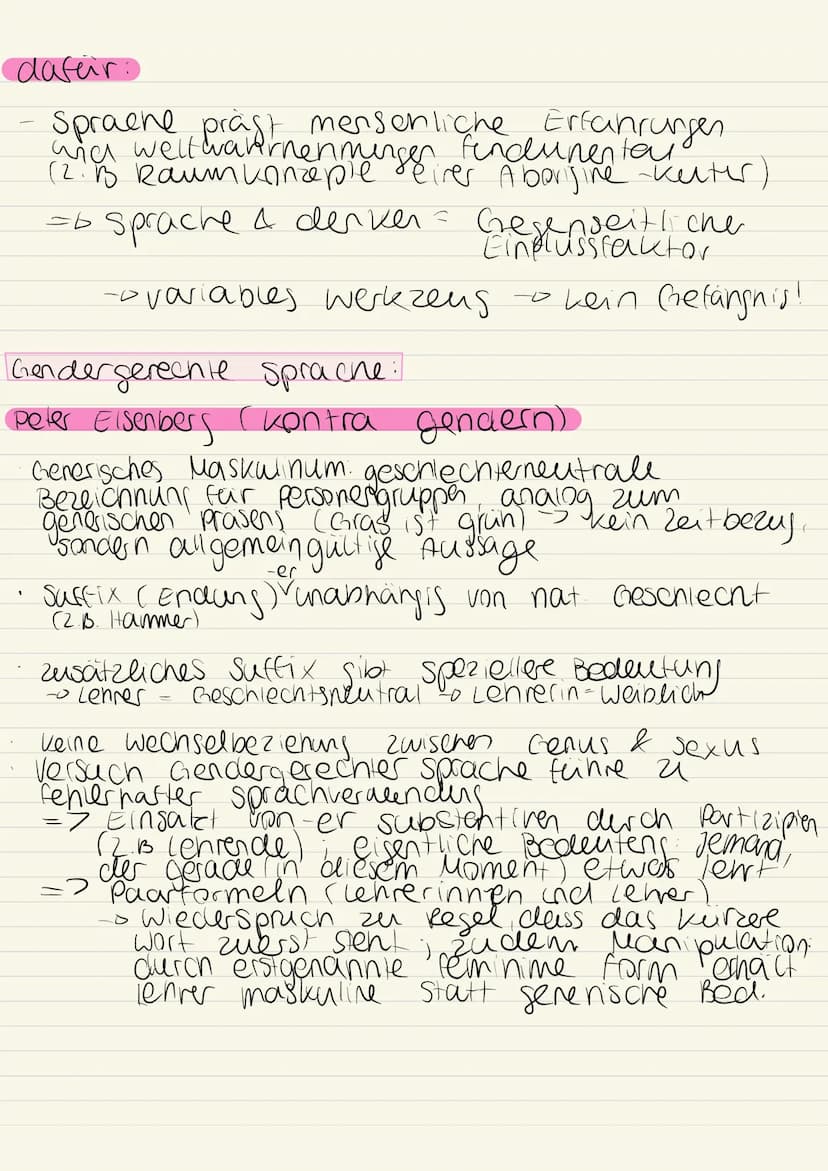 dafür:
- Sprache prägt menschliche Erfahrungen
und Weltwahrnehmungen fundamental
(z.B Raumkonzepte einer Aborigine-Kultur)
=> Sprache & denken = Gegenseitlicher
Einflussfaktor
-> variables Werkzeug -> kein Gefängnis!
Gendergerechte Sprache:
Peter Eisenberg (kontra gendern)
Generisches Maskulinum: geschlechterneutrale
Bezeichnung für Personengruppen, analog zum
generischen Präsens (Gras ist grün) -> kein Zeitbezug,
sondern allgemeingültige Aussage
· Suffix (Endung) -er unabhängig von nat. Geschlecht
(z.B. Hammer)
· zusätzliches Suffix gibt speziellere Bedeutung
-> Lehrer = Geschlechtsneutral -> Lehrerin = Weiblich
· keine Wechselbeziehung zwischen Genus & Sexus
· Versuch Gendergerechter Sprache führe zu
fehlerhafter Sprachverwendung
=> Einsatz von -er substantiven durch Partizipien
(z.B Lehrende); eigentliche Bedeutung: Jemand,
der gerade (in diesem Moment) etwas lehrt
=> Paarformeln (Lehrerinnen und Lehrer)
-> Wiederspruch zu Regel, dass das kürzere
Wort zuerst steht; zudem Manipulation:
durch erstgenannte feminime Form erhält
Lehrer maskuline statt generische Bed.